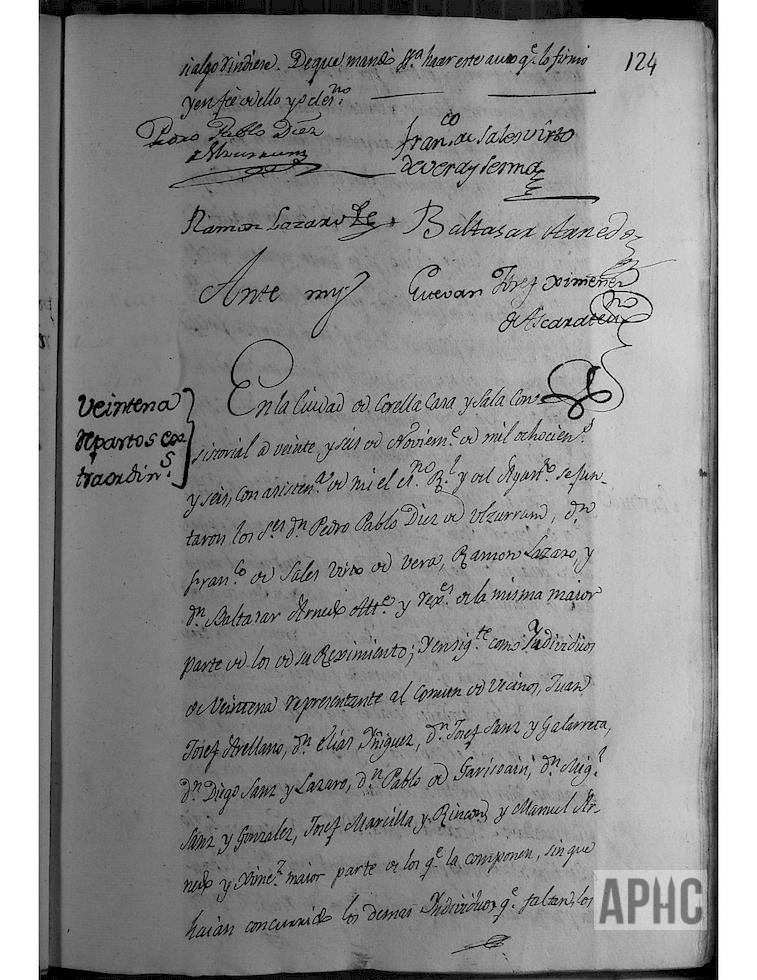 si algo rindiese. De que mandó S.ª hacer este auto q.e lo firmó
124
y en fee de ello yo el es.no
Pedro Pablo Diez
de Ulzurrunz
Fran.co de Sales Virto
de Vera y Lerma
Ramon Lazaro
Baltasar Arnedo
Ante my
Estevan Josef Ximenez
de Ascarate
Veintena
de partos ex
traordin.s
En la Ciudad de Corella Casa y Sala Con-
sistorial a veinte, y seis de Noviem.e de mil ochocien.s
y seis, con asisten.a de mi el es.no R.l y del Ayunt.o se jun-
taron los S.es d.n Pedro Pablo Diez de Ulzurrun, d.n
Fran.co de Sales Virto de Vera, Ramon Lazaro, y
d.n Baltasar Arnedo Alc.e y rex.s de la misma maior
parte de los de su Reximiento; y en sig.te como Individuos
de Veintena representante al comun de Vecinos, Juan
Josef Arellano, d.n Elias Yñiguez, d.n Josef Sanz y Galarreta,
d.n Diego Sanz y Lazaro, d.n Pablo de Garisoain, d.n Mig.l
Sanz y Gonzalez, Josef Marcilla, y Rincon, y Manuel Ar-
nedo y Xime.z maior parte de los q.e la componen, sin que
haian concurrido los demas Individuos q.e faltan, los
APHC